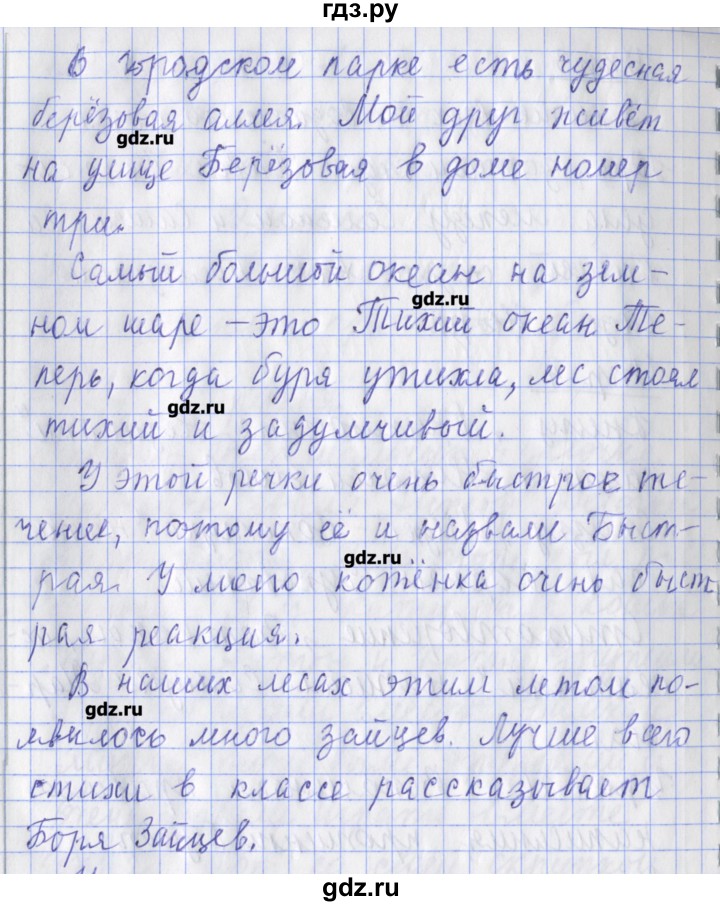 гдз.ру
В городском парке есть чудесная
берёзовая аллея. Мой друг живёт
gdz.ru
на улице Берёзовая в доме номер
три.
Самый большой океан на зем-
gdz.ru
ном шаре – это Тихий океан. Те-
перь, когда буря утихла, лес стоял
gdz.ru
тихий и задумчивый.
У этой речки очень быстрое те-
чение, поэтому её и назвали Быст-
gdz.ru
рая. У моего котёнка очень быст
рая реакция.
В наших лесах этим летом по-
gdz.ru
явилось много зайцев. Лучше всего
стихи в классе рассказывает
Боря Зайцев.
gdz.ru